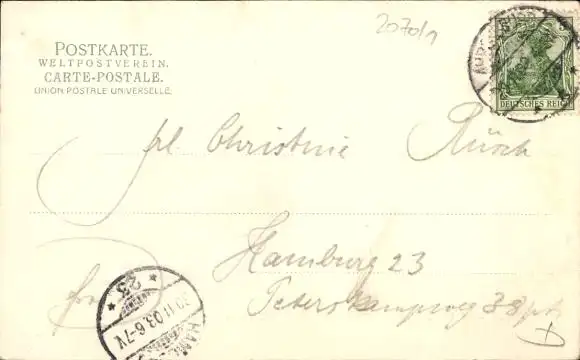 2070/1
POSTKARTE.
WELTPOSTVEREIN.
CARTE-POSTALE.
UNION POSTALE UNIVERSELLE.
DEUTSCHES REICH
frl Christine Rüsch
Hamburg 23
Peterskampweg 38 ptr
23
30.11.03.6-7V.